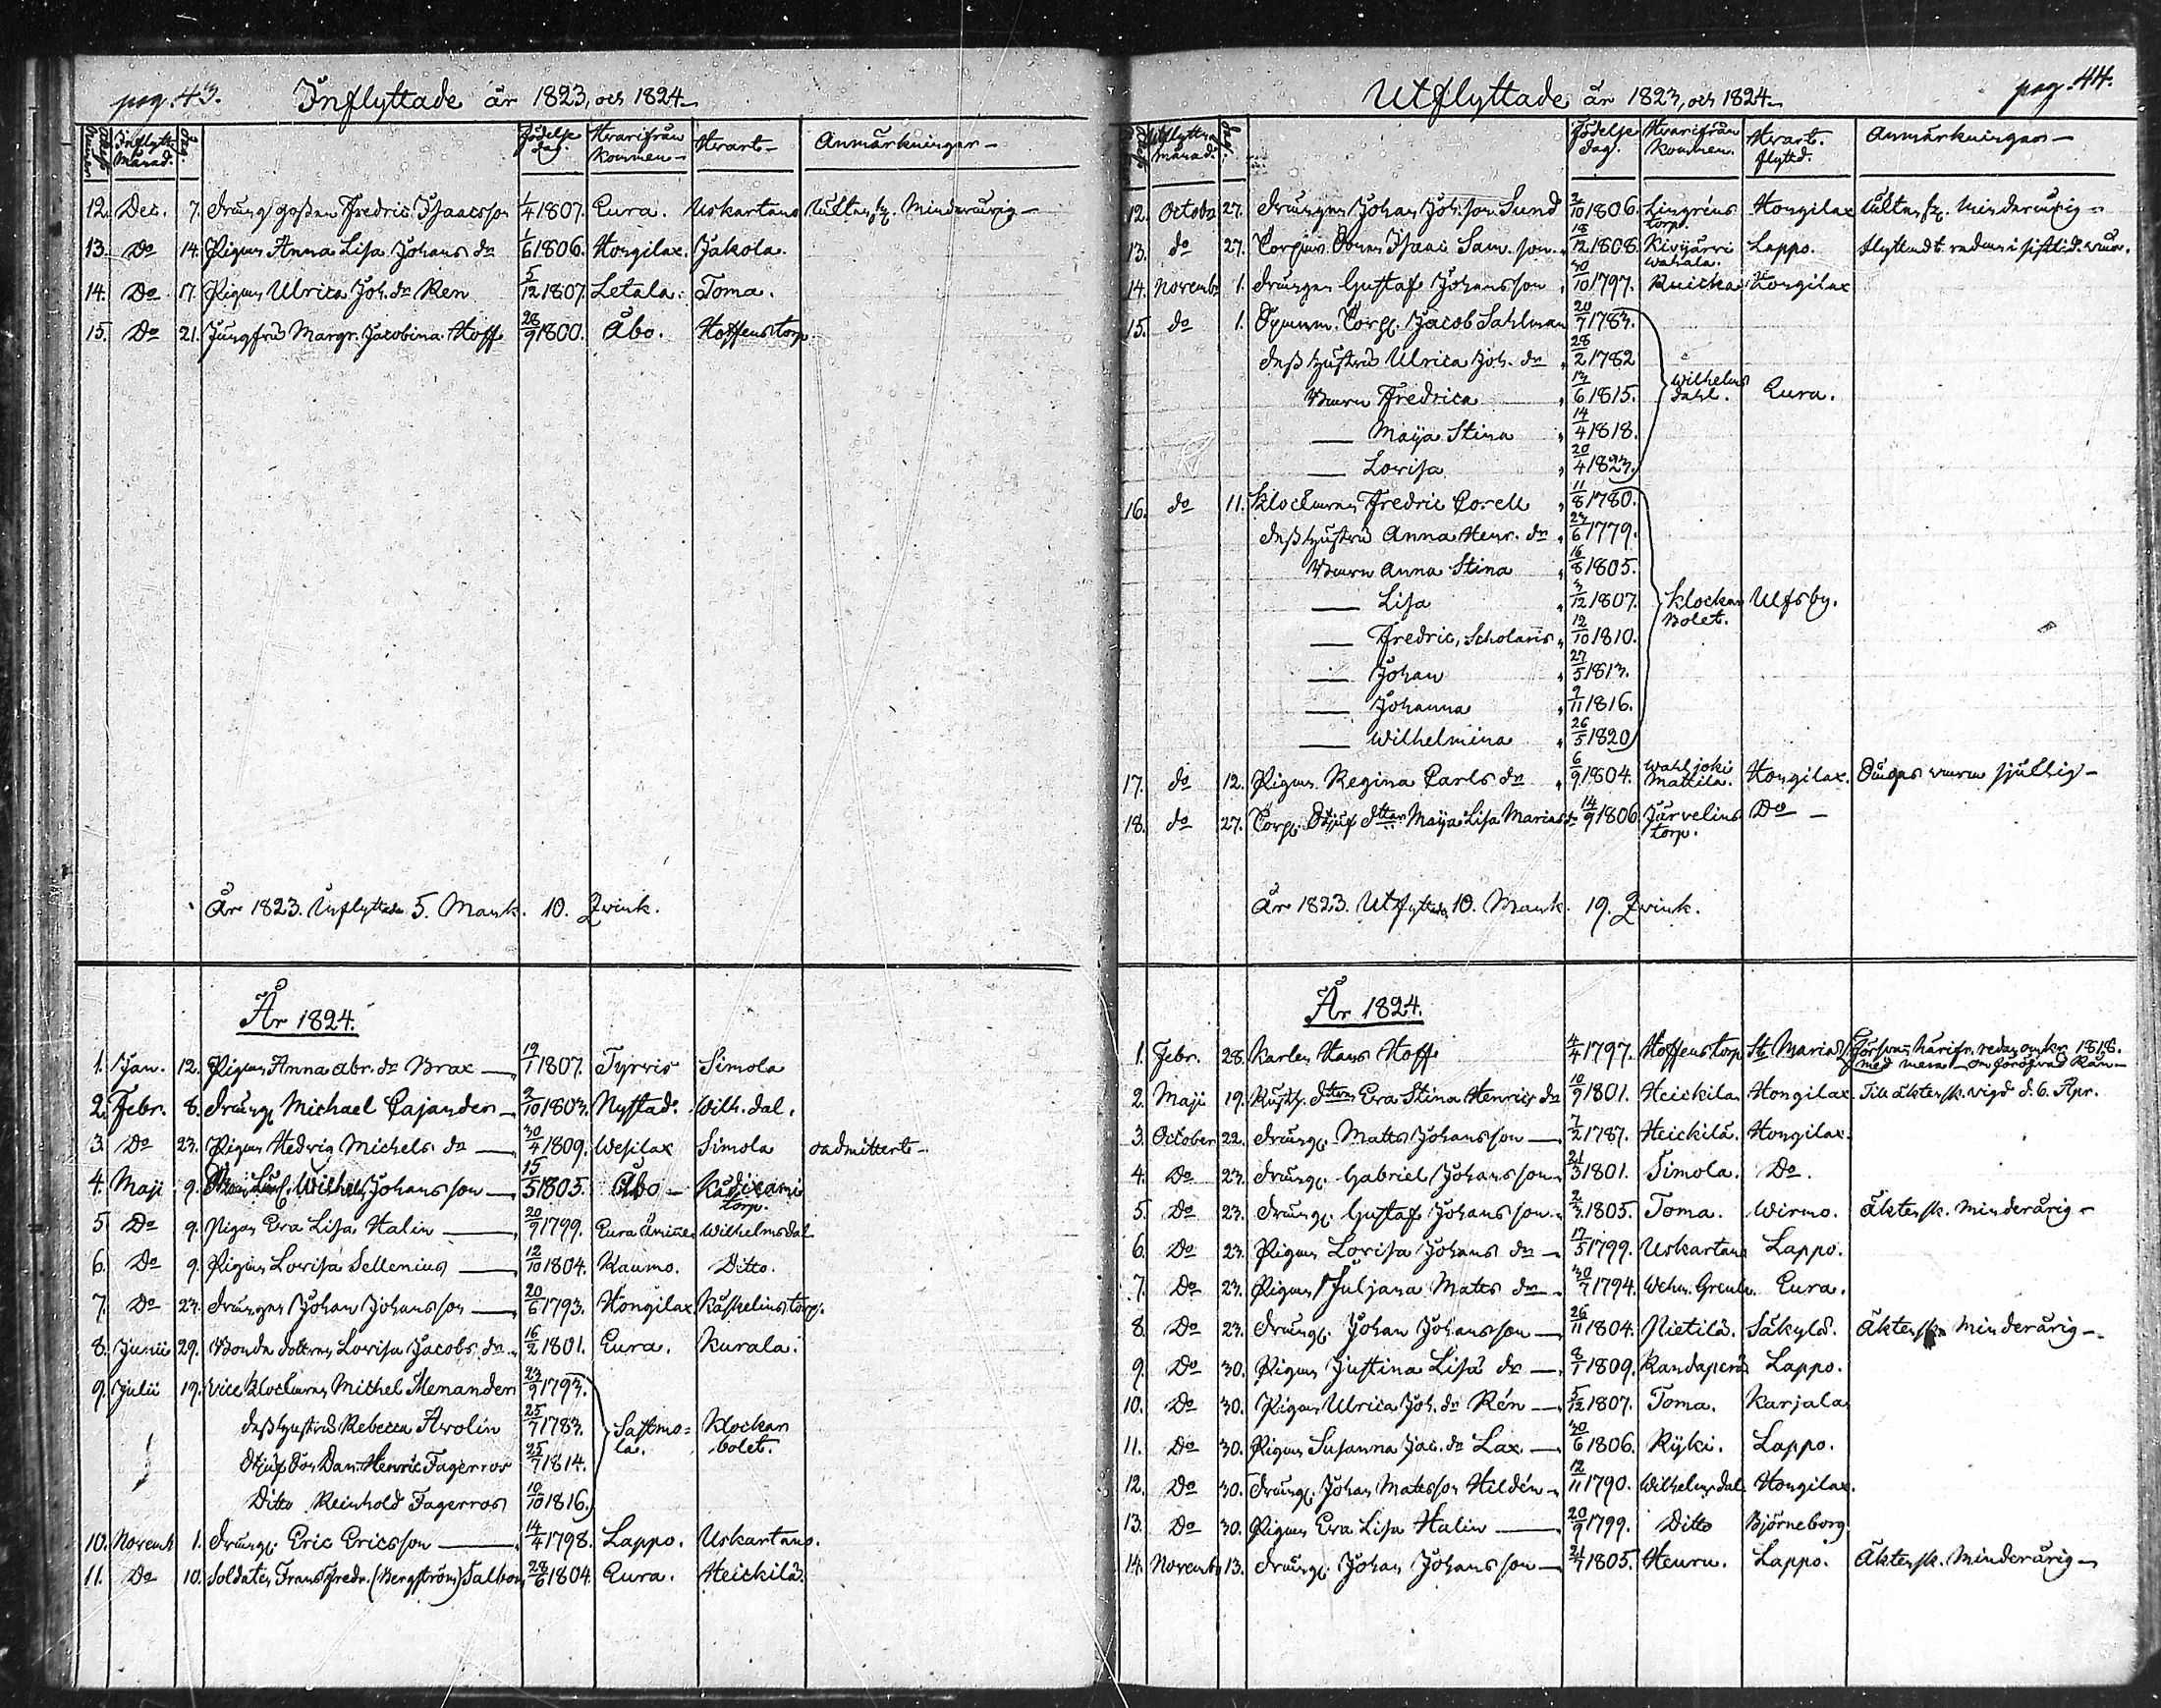 pag. 43. Inflyttade år 1823, och 1824
Inflytt. Månad. dag Födelse dag. Hvarifrån kommen Hvart Anmärkningar
12. Dec. 7. Dräng gossen Fredric Isaacsson 1/4 1807. Eura. Uskartano Minderårig
13. Do 14. Pigan Anna Lisa Johans dr 1/6 1806. Hongilax. Jakola.
14. Do 17. Pigan Ulrica Joh. dr Ren 5/12 1807. Letala. Toma.
15. Do 21. Jungfru Margr. Jacobina Hoff 28/9 1800. Åbo. Hoffens torp.
År 1823. Inflyttade 5. Mank. 10. Qvink.
År 1824.
1. Jan. 12. Pigan Anna Abr. dr Brax 19/1 1807. Tyrvis Simola
2. Febr. 8. Dräng. Michael Cajander 2/10 1803. Nystad. Wilh. dal.
3. Do 23. Pigan Hedvig Michels dr 30/4 1809. Wesilax Simola oadmitterd
4. Maji 9. Wilhelm Johansson 15/5 1805. Åbo torp.
5. Do 9. Pigan Eva Lisa Halin 20/9 1799. Eura Åminne Wilhelmsdal
6. Do 9. Pigan Lovisa Sellenius 12/10 1804. Raumo. Ditto.
7. Do 23. Drängen Johan Johansson 20/6 1793. Hongilax Käskelins torp.
8. Junii 29. Bonde dottren Lovisa Jacobs dr 16/2 1801. Eura. Kurala.
9. Julii 19. Vice Klockaren Michel Menander 23/9 1793.
dess hustru Rebecca Avolin 25/7 1783. Sastmola. Klockar bolet.
Styf Son Dan. Henric Fagerros 25/7 1814.
Ditto Reinhold Fagerros 10/10 1816.
10. Novemb. 1. Dräng. Eric Ericsson 14/4 1798. Lappo. Uskartano.
11. Do 10. Soldaten Frans Fredr. (Bergström) Salbom 28/6 1804. Eura. Heickilä.
Utflyttade år 1823, och 1824 pag. 44.
Utflyttn. månad. dag. Födelse dag. Hvarifrån kommen. Hvart flyttd. Anmärkningar
12. Octobr 27. Drängen Johan Joh.son Sund 2/10 1806. Lingréns torp. Hongilax Minderårig
13. do 27. Isaac Sam. son 18/12 1808. Kivijärvi Lappo.
14. Novembr 1. Drängen Gustaf Johansson 30/10 1797. Hongilax
15. do 1. Torp. Jacob Sahlman 20/7 1783.
dess hustru Ulrica Joh. dr 28/2 1782
Barn Fredrica 13/6 1815. Wilhelms dahl. Eura.
— Maija Stina 14/4 1818.
— Lovisa 20/4 1823.
16. do 11. Klockaren Fredric Corell 11/8 1780.
dess hustru Anna Henr. dr 27/6 1779.
Barn Anna Stina 16/8 1805.
— Lisa 3/12 1807. Klockar Bolet. Ulfsby.
— Fredric, Scholaris 12/10 1810.
— Johan 27/5 1813.
— Johanna 9/11 1816.
— Wilhelmina 26/5 1820
17. do 12. Pigan Regina Carls dr 6/9 1804. Wahljoki Mattila. Hongilax.
18. do 27. Torp. Styf dottren Maija Lisa Marias dr 14/9 1806 Järvelius torp. Do
År 1823. Utflyttade 10. Mank. 19. Qvink.
År 1824.
1. Febr. 28. Karlen Hans Hoff 4/4 1797. Hoffens torp St. Marias härifr. redan omkr. 1818.
2. Maji 19. Rusth. dottren Eva Stina Henrics dr 10/9 1801. Heickilä Hongilax. Till äktensk. vigd d. 6. Apr.
3. October 22. Dräng. Matts Johansson 7/2 1787. Heickilä. Hongilax.
4. Do 23. Dräng. Gabriel Johansson 21/3 1801. Simola. Do.
5. Do 23. Dräng. Gustaf Johansson 2/3 1805. Toma. Wirmo. Äktensk. Minderårig
6. Do 23. Pigan Lovisa Johans dr 17/5 1799. Uskartano Lappo.
7. Do 23. Pigan Juljana Matts dr 30/7 1794. Eura.
8. Do 23. Dräng. Johan Johansson 26/11 1804. Nietilä. Säkylä. Äktensk. Minderårig
9. Do 30. Pigan Justina Lisä dr 8/1 1809. Lappo.
10. Do 30. Pigan Ulrica Joh. dr Rén 5/12 1807. Toma. Karjala
11. Do 30. Pigan Susanna Jac. dr Lax 30/6 1806. Ryki. Lappo.
12. Do 30. Dräng. Johan Mattsson Hildén 12/11 1790. Wilhelmsdal. Hongilax.
13. Do 30. Pigan Eva Lisa Halin 20/9 1799. Ditto Björneborg
14. Novembr 13. Dräng. Johan Johansson 21/7 1805. Heuru. Lappo. Äktensk. Minderårig